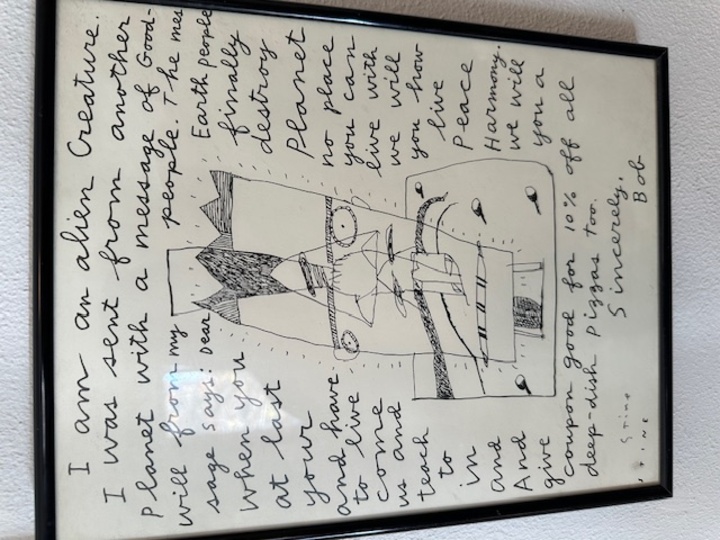 I am an alien Creature.
I was sent from another
Planet with a message of Good-
will from my people. The mes
sage says: Dear Earth people
When you finally
at last destroy
your Planet
and have no place
to live you can
come live with
us and we will
teach you how
to live
in Peace
and Harmony.
And we will
give you a
coupon good for 10% off all
deep-dish Pizzas too.
Sincerely,
Bob